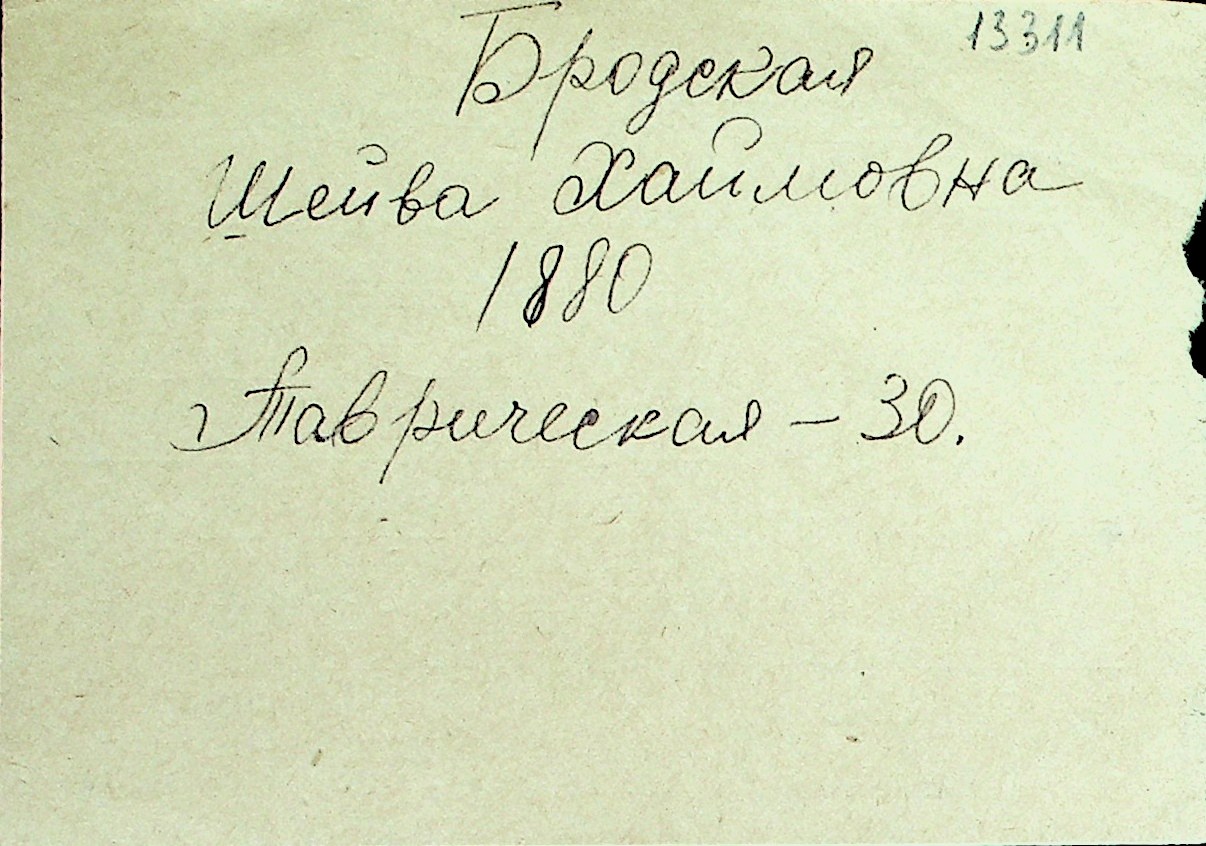 13311
Бродская
Шейва Хаймовна
1880
Таврическая - 30.